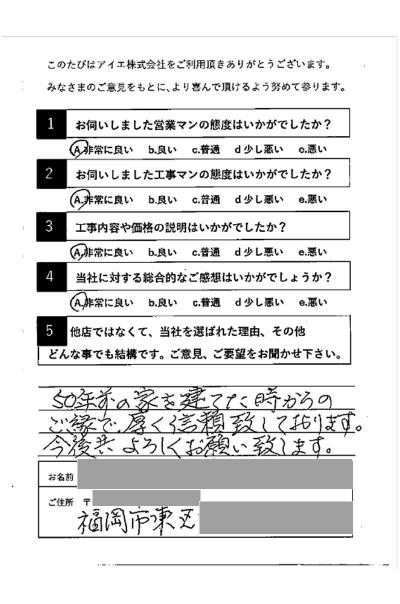 このたびはアイエ株式会社をご利用頂きありがとうございます。
みなさまのご意見をもとに、より喜んで頂けるよう努めて参ります。
1 お伺いしました営業マンの態度はいかがでしたか？
A.非常に良い b.良い c.普通 d 少し悪い e.悪い
2 お伺いしました工事マンの態度はいかがでしたか？
A.非常に良い b.良い c.普通 d 少し悪い e.悪い
3 工事内容や価格の説明はいかがでしたか？
A.非常に良い b.良い c.普通 d 少し悪い e.悪い
4 当社に対する総合的なご感想はいかがでしょうか？
A.非常に良い b.良い c.普通 d 少し悪い e.悪い
5 他店ではなくて、当社を選ばれた理由、その他
どんな事でも結構です。ご意見、ご要望をお聞かせ下さい。
50年前の家を建てた時からの
ご縁で厚く信頼致しております。
今後共よろしくお願い致します。
お名前
ご住所 〒
福岡市東区